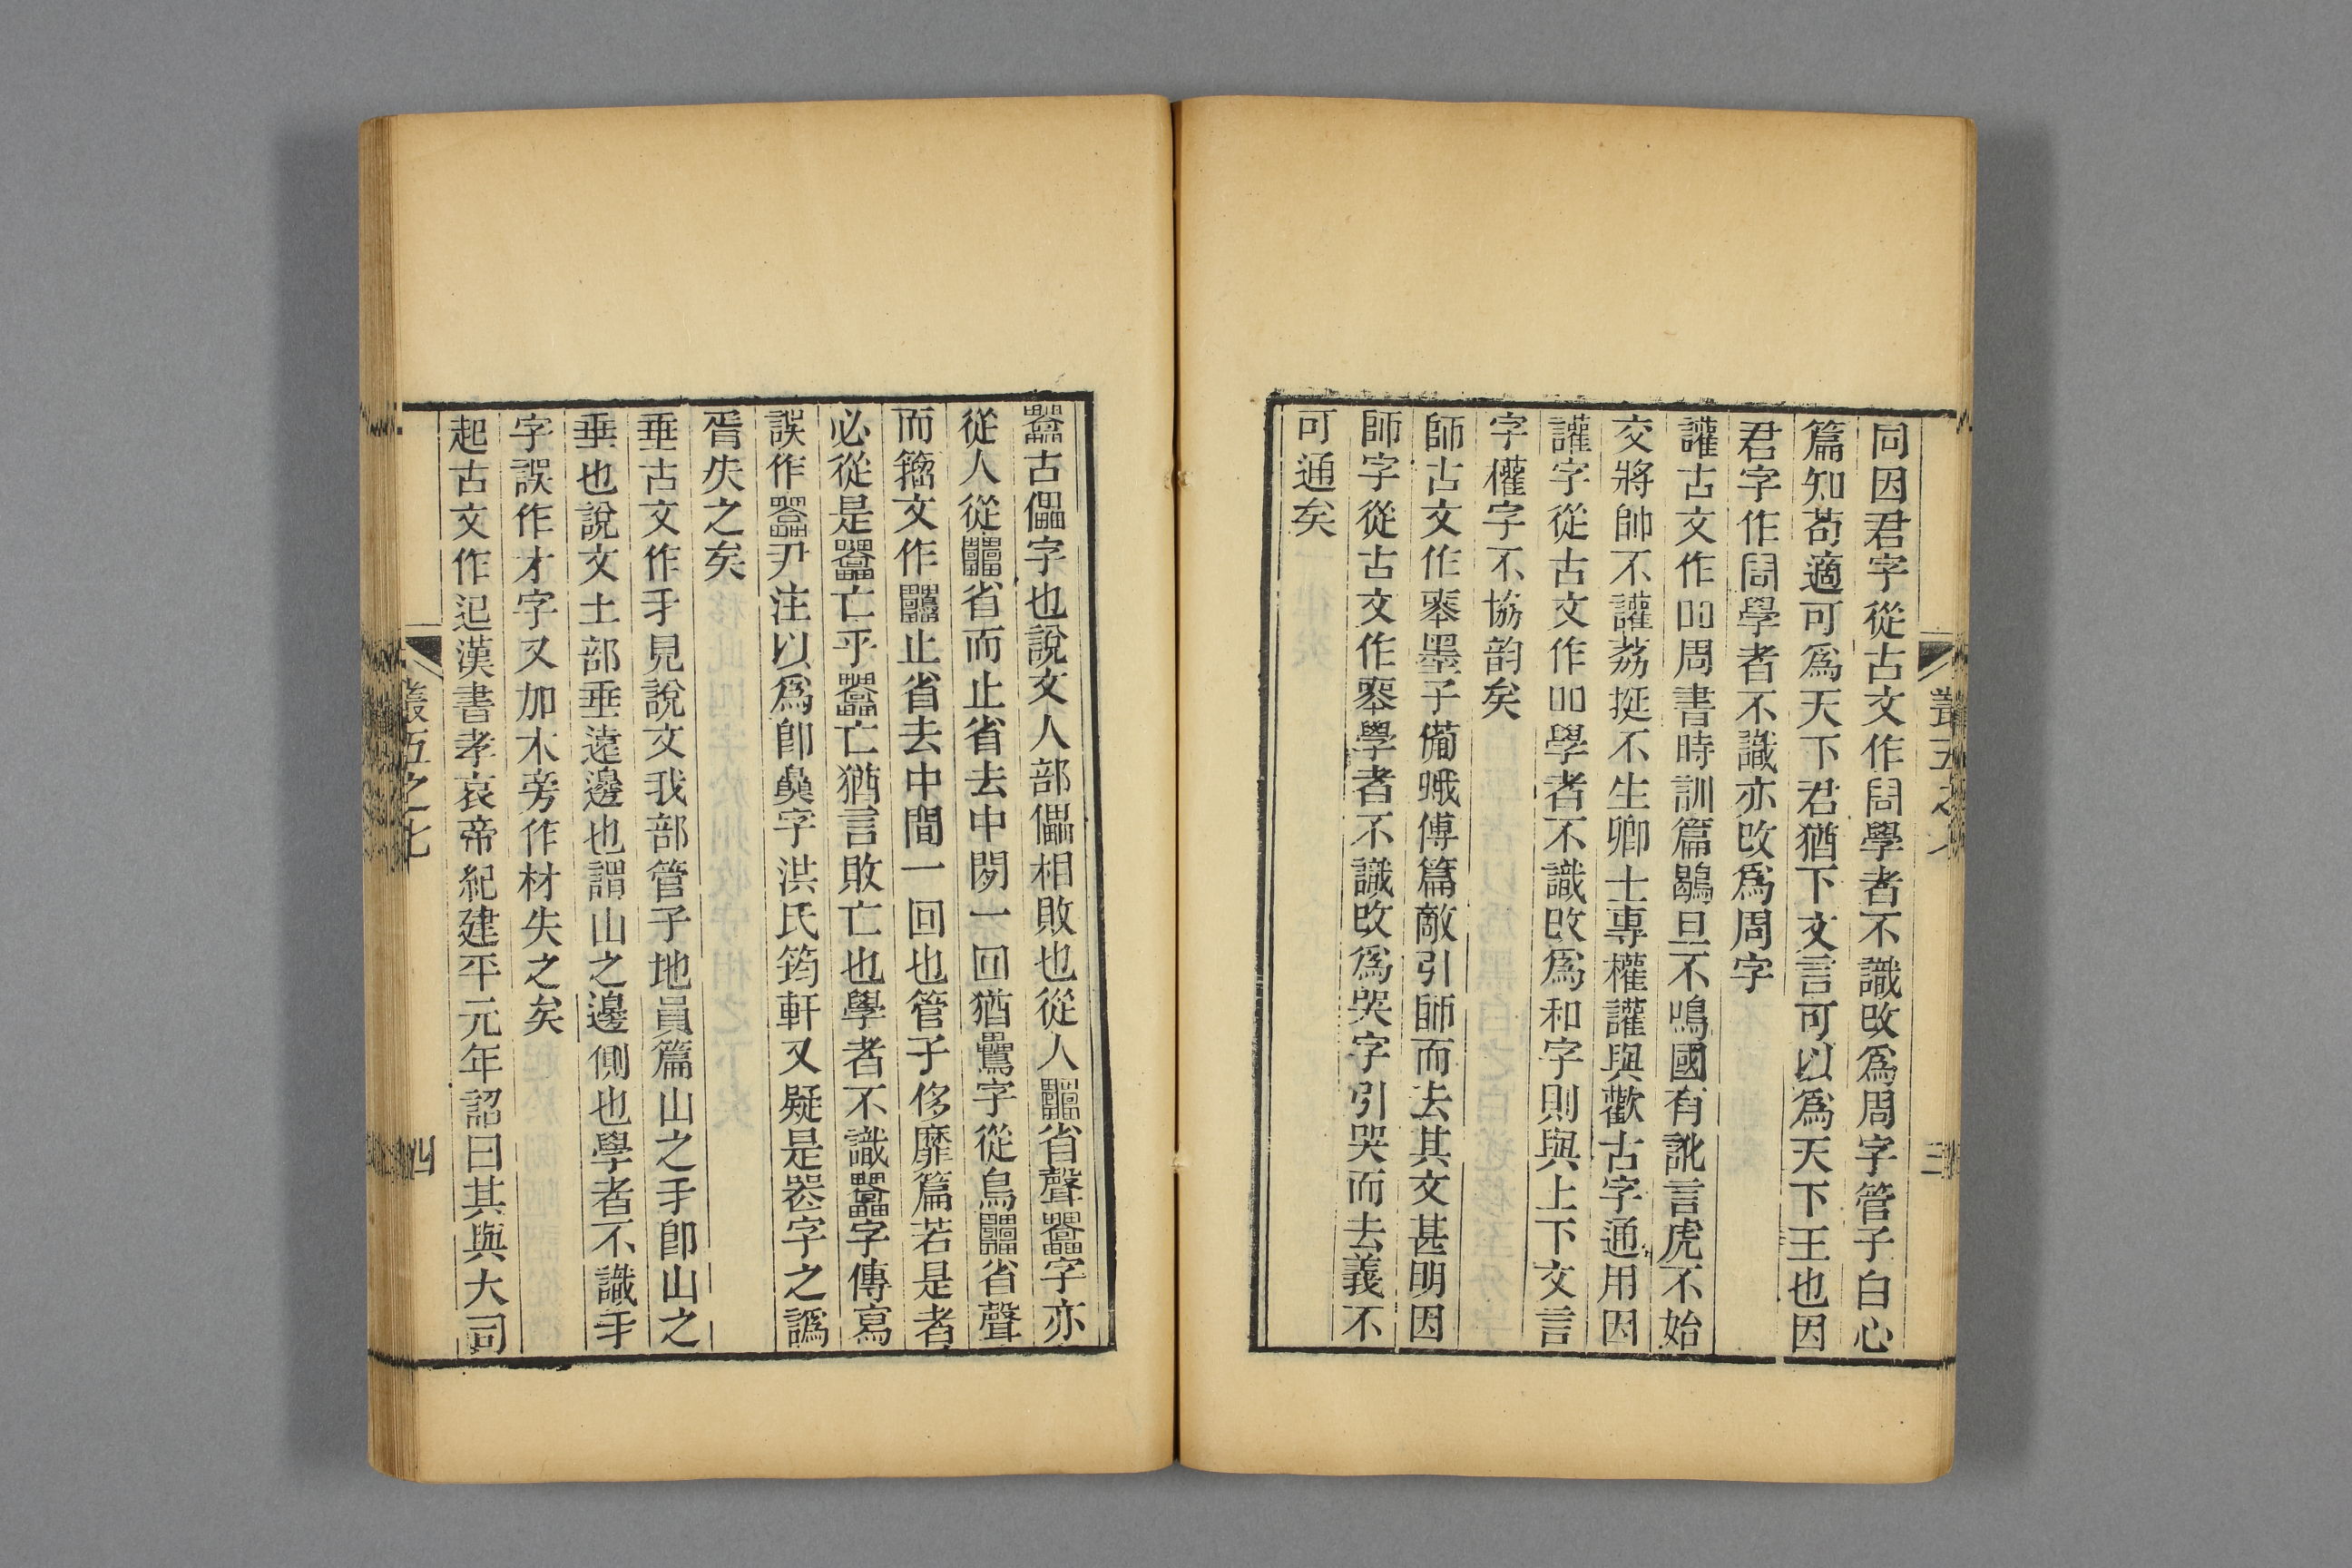 同因君字從古文作𠱩學者不識改爲周字管子白心
篇知苟適可爲天下君猶下文言可以爲天下王也因
君字作𠱩學者不識亦改爲周字
讙古文作吅周書時訓篇鶡旦不鳴國有訛言虎不始
交將帥不讙荔挺不生卿士專權讙與歡古字通用因
讙字從古文作吅學者不識改爲和字則與上下文言
字權字不協韵矣
師古文作 墨子備蛾傅篇敵引師而去其文甚明因
師字從古文作 學者不識改爲哭字引哭而去義不
可通矣
古儡字也說文人部儡相敗也從人 省聲 字亦
從人從 省而止省去中間一回猶鸓字從鳥 省聲
而籀文作 止省去中間一回也管子侈靡篇若是者
必從是 亡乎 亡猶言敗亡也學者不識 字傳寫
誤作 尹注以爲卽 字洪氏筠軒又疑是 字之譌
胥失之矣
垂古文作𠂹見說文我部管子地員篇山之𠂹卽山之
垂也說文土部垂遠邊也謂山之邊側也學者不識𠂹
字誤作才字又加木旁作材失之矣
起古文作𨑔漢書孝哀帝紀建平元年詔曰其與大司
叢五之七
四
三